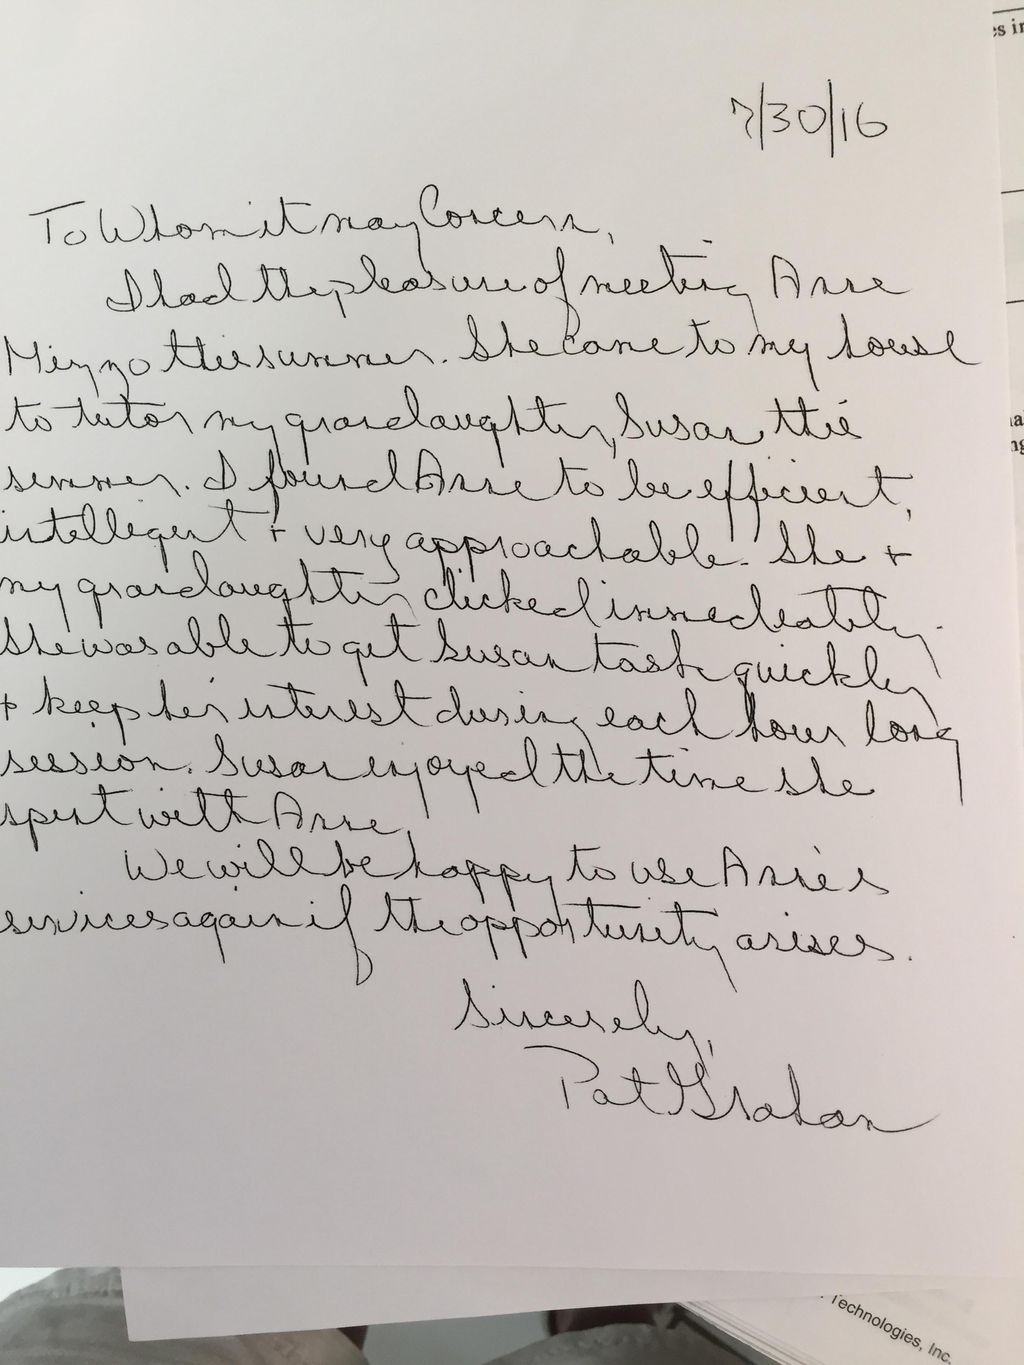 7/30/16
To Whom it may Concern,
I had the pleasure of meeting Anne
Mizzo this summer. She came to my house
to tutor my grandaughter, Susan, this
summer. I found Anne to be efficient,
intelligent + very approachable. She +
my grandaughter clicked immediately.
She was able to get Susan task quickly
+ keep her interest during each hour long
session. Susan enjoyed the time she
spent with Anne.
We will be happy to use Anne's
services again if the opportunity arises.
Sincerely,
Pat Graham
es in
Technologies, Inc.